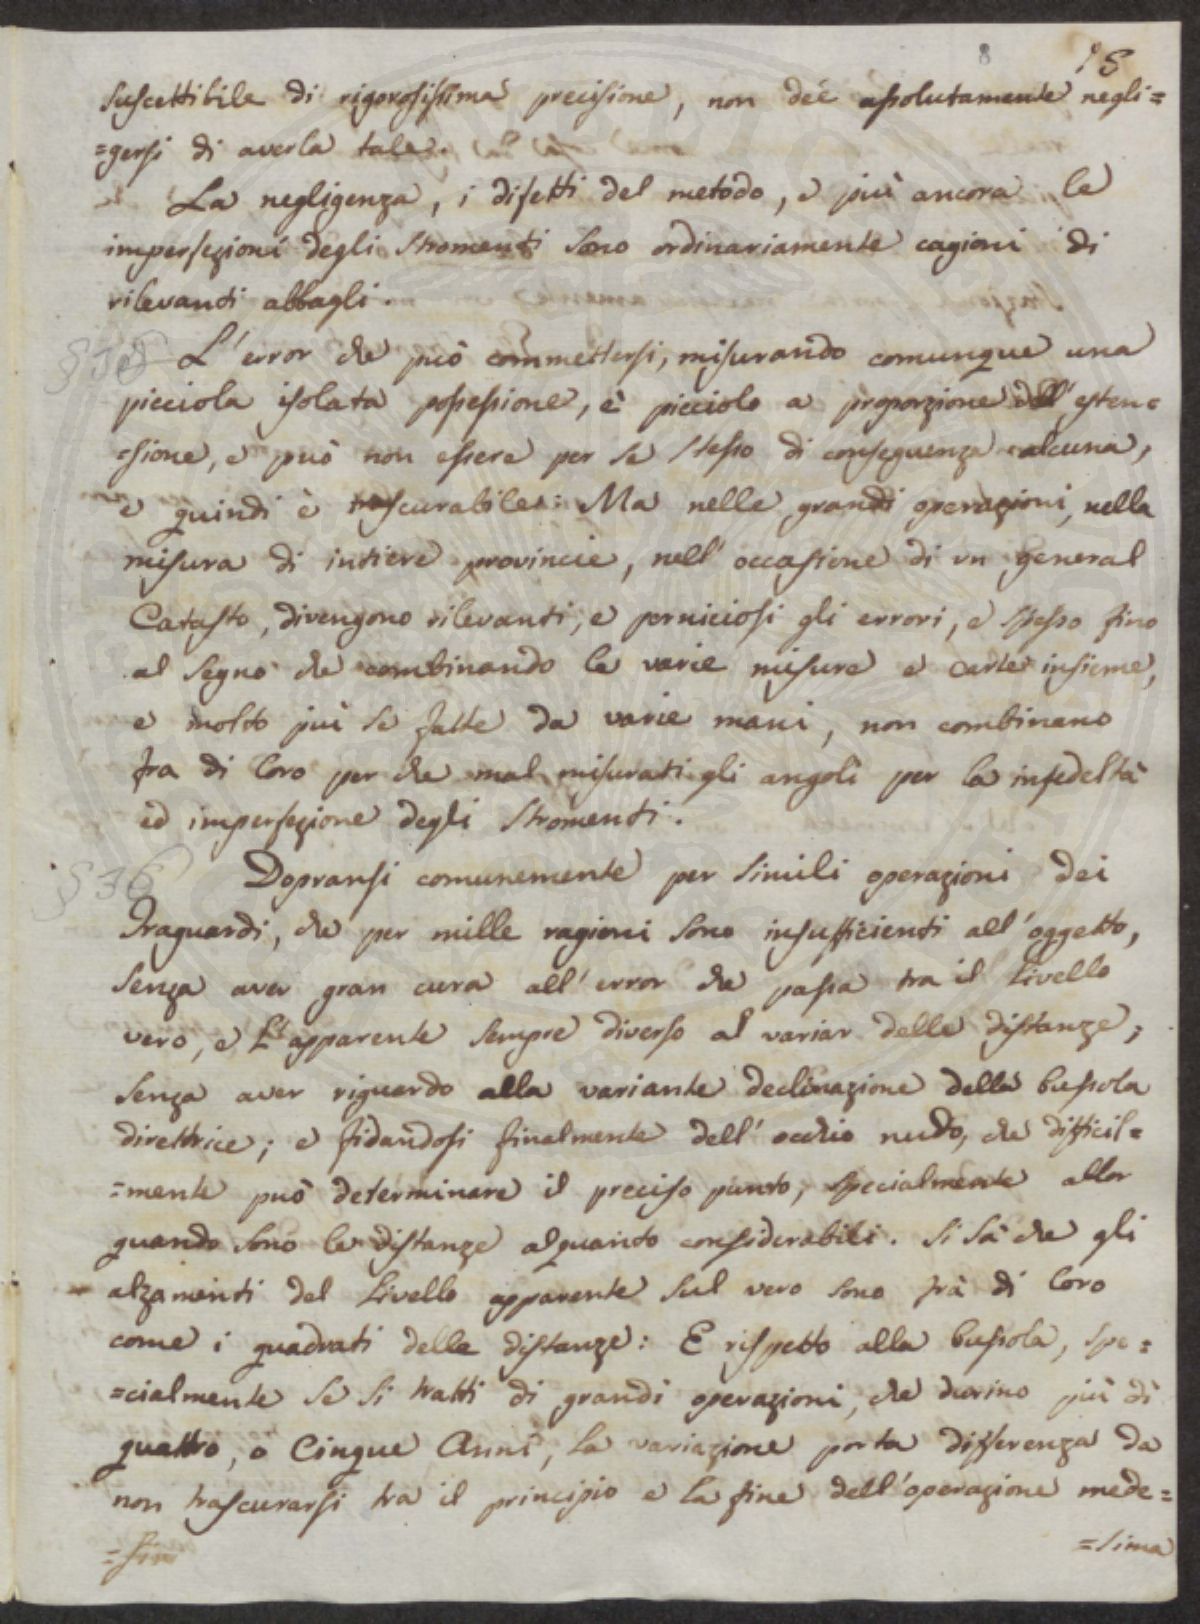 8
15
suscettibile di rigorosissima precisione, non deé assolutamente negli=
=gersi di averla tale.
La negligenza, i difetti del metodo, e più ancora le
imperfezioni degli stromenti sono ordinariamente cagioni di
rilevanti abbagli.
L'error che può commettersi, misurando comunque una
picciola isolata possessione, è picciolo a proporzione dell'esten=
=sione, e può non essere per se stesso di conseguenza alcuna,
e quindi è trascurabile: Ma nelle grandi operazioni, nella
misura di intiere provincie, nell'occasione di un general
Catasto, divengono rilevanti, e perniciosi gli errori, e spesso fino
al segno che combinando le varie misure e carte insieme,
e molto più se fatte da varie mani, non combinano
fra di loro per che mal misurati gli angoli per la infedeltà
ed imperfezione degli stromenti.
§ 36
Dopransi comunemente per simili operazioni dei
Traguardi, che per mille ragioni sono insufficienti all'oggetto,
senza aver gran cura all'error che passa tra il Livello
vero, e l'apparente sempre diverso al variar delle distanze;
senza aver riguardo alla variante declinazione della bussola
direttrice; e fidandosi finalmente dell'occhio nudo, che difficil=
=mente può determinare il preciso punto, specialmente allor
quando sono le distanze alquanto considerabili. Si sà che gli
alzamenti del Livello apparente sul vero sono frà di loro
come i quadrati delle distanze: E rispetto alla bussola, spe=
=cialmente se si tratti di grandi operazioni, che durino più di
quattro, o Cinque Anni, la variazione porta differenza da
non trascurarsi tra il principio e la fine dell'operazione mede=
=sima